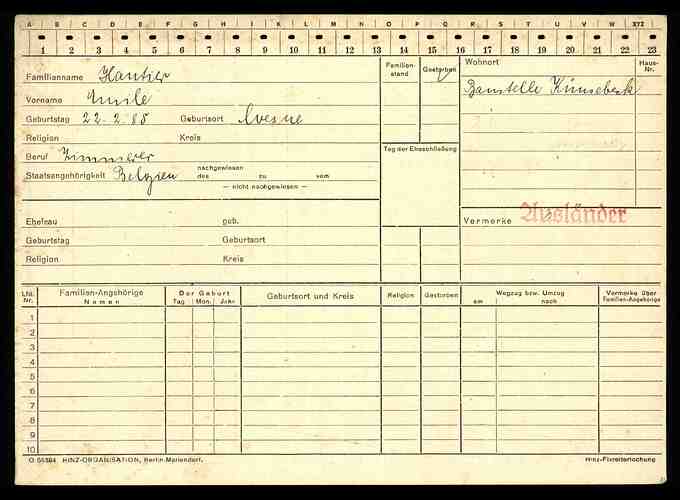 A B C D E F G H I J K L M N O P Q R S T U V W XYZ
1 2 3 4 5 6 7 8 9 10 11 12 13 14 15 16 17 18 19 20 21 22 23
Familienname Hautier
Vorname Emile
Geburtstag 22. 2. 88 Geburtsort Avesne
Religion Kreis
Beruf Zimmerer
Staatsangehörigkeit Belgien nachgewiesen des zu vom
— nicht nachgewiesen —
Familienstand Gestorben
Tag der Eheschließung
Wohnort Haus-Nr.
Baustelle Künsebeck
Vermerke Ausländer
Ehefrau geb.
Geburtstag Geburtsort
Religion Kreis
Lfd. Nr. Familien-Angehörige Namen Der Geburt Tag Mon. Jahr Geburtsort und Kreis Religion Gestorben Wegzug bzw. Umzug am nach Vermerke über Familien-Angehörige
1
2
3
4
5
6
7
8
9
10
HINZ-ORGANISATION, Berlin-Mariendorf.
Hinz-Fixreiterlochung